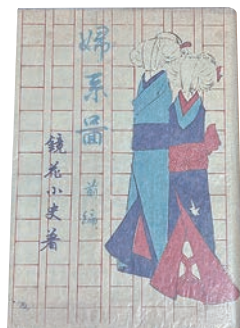 婦系圖
前編
鏡花小史著